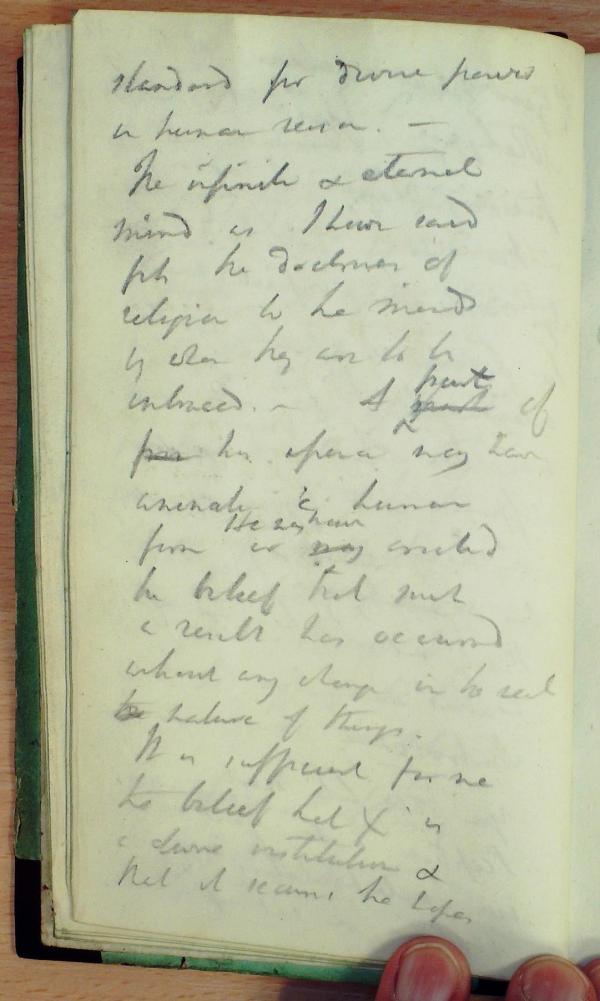 standard for divine powers
in human reason. —
The infinite & eternal
mind as I have said
fits the doctrines of
religion to the minds
by whom they are to be
embraced. – A part of
his essence may have
animated a human
form or He may have created
the belief that such
a result has occurred
without any change in the real
nature of things.
It is sufficient for me
the belief that X^y is
a divine institution &
that it secures the hopes